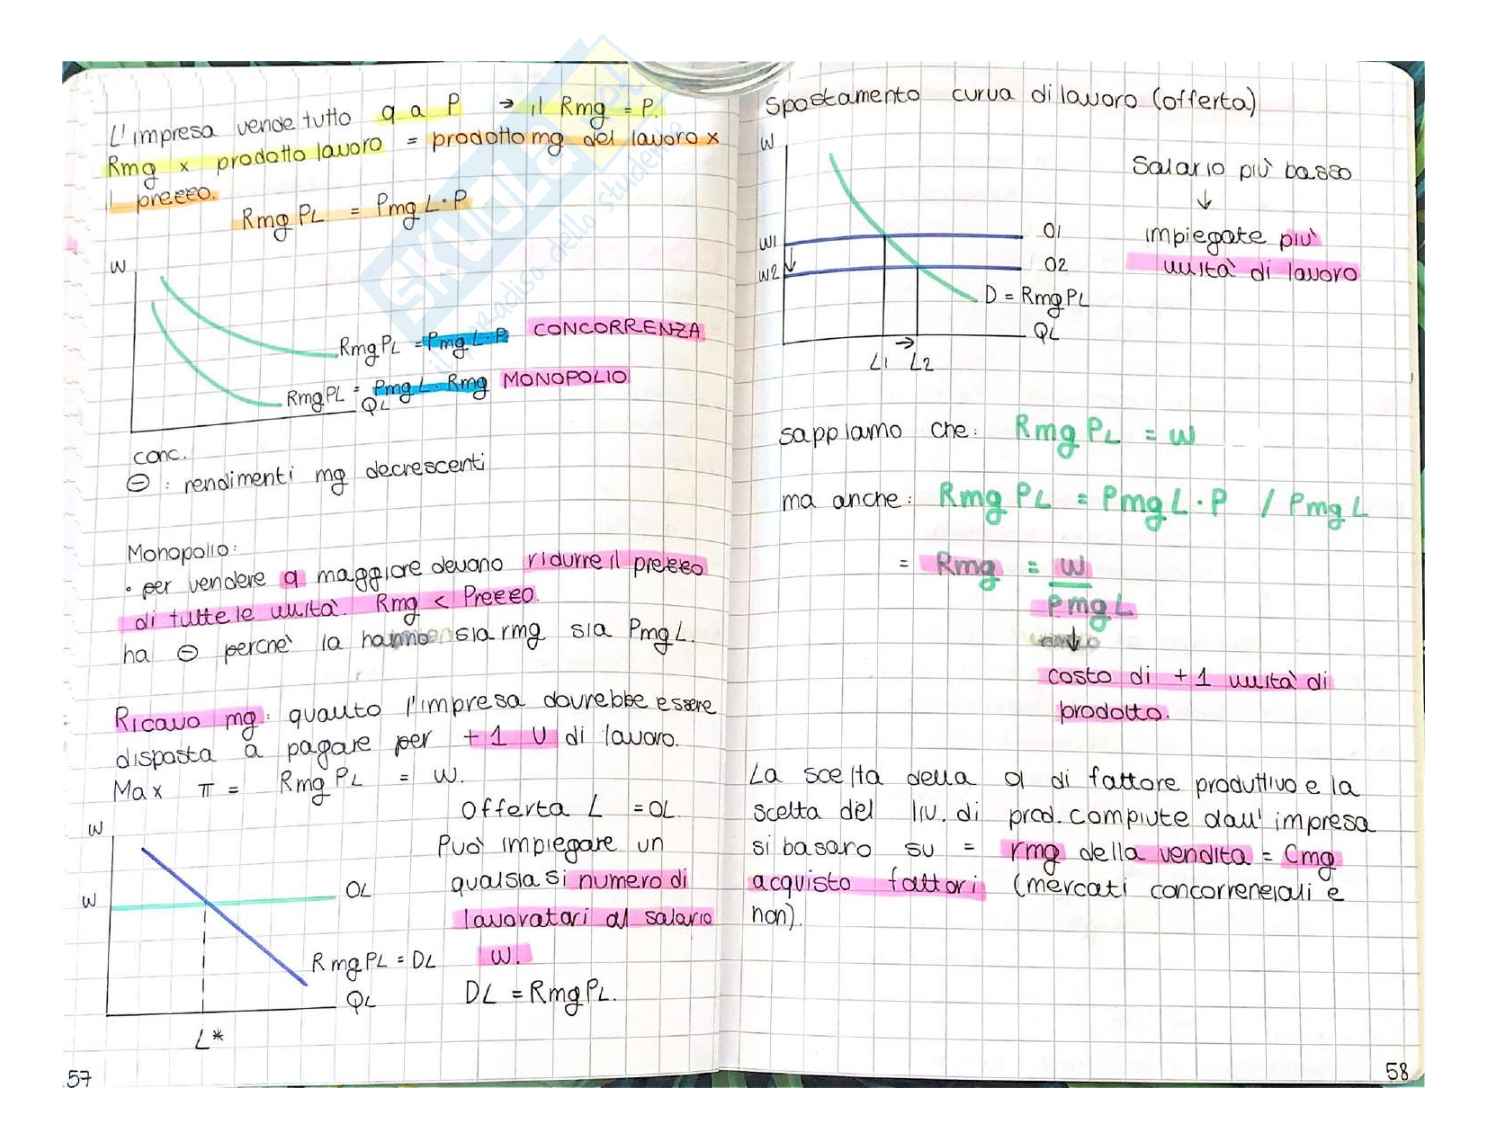 L'impresa vende tutto q a P → il Rmg = P.
Rmg x prodotto lavoro = prodotto mg del lavoro x
il prezzo.
Rmg PL = Pmg L · P
w
RmgPL = Pmg L · P CONCORRENZA
RmgPL = Pmg L · Rmg MONOPOLIO
QL
conc.
⊖ : rendimenti mg decrescenti
Monopolio:
• per vendere q maggiore devono ridurre il prezzo
di tutte le unità. Rmg < Prezzo.
ha ⊖ perchè la hanno sia rmg sia PmgL.
Ricavo mg: quanto l'impresa dovrebbe essere
disposta a pagare per +1 U di lavoro.
Max π = Rmg PL = w.
Offerta L = OL.
Può impiegare un
qualsiasi numero di
lavoratori al salario
w.
DL = RmgPL.
w
w
OL
RmgPL = DL
QL
L*
57
Spostamento curva di lavoro (offerta)
w
w1
w2
O1
O2
D = RmgPL
QL
L1 → L2
Salario più basso
↓
impiegate più
unità di lavoro
sappiamo che: Rmg PL = w
ma anche: Rmg PL = Pmg L · P / Pmg L
= Rmg = w
Pmg L
↓
costo di +1 unità di
prodotto.
La scelta della q di fattore produttivo e la
scelta del liv. di prod. compiute dall'impresa
si basano su = rmg della vendita = Cmg
acquisto fattori (mercati concorrenziali e
non).
58
SKUOLA
paradiso dello studente